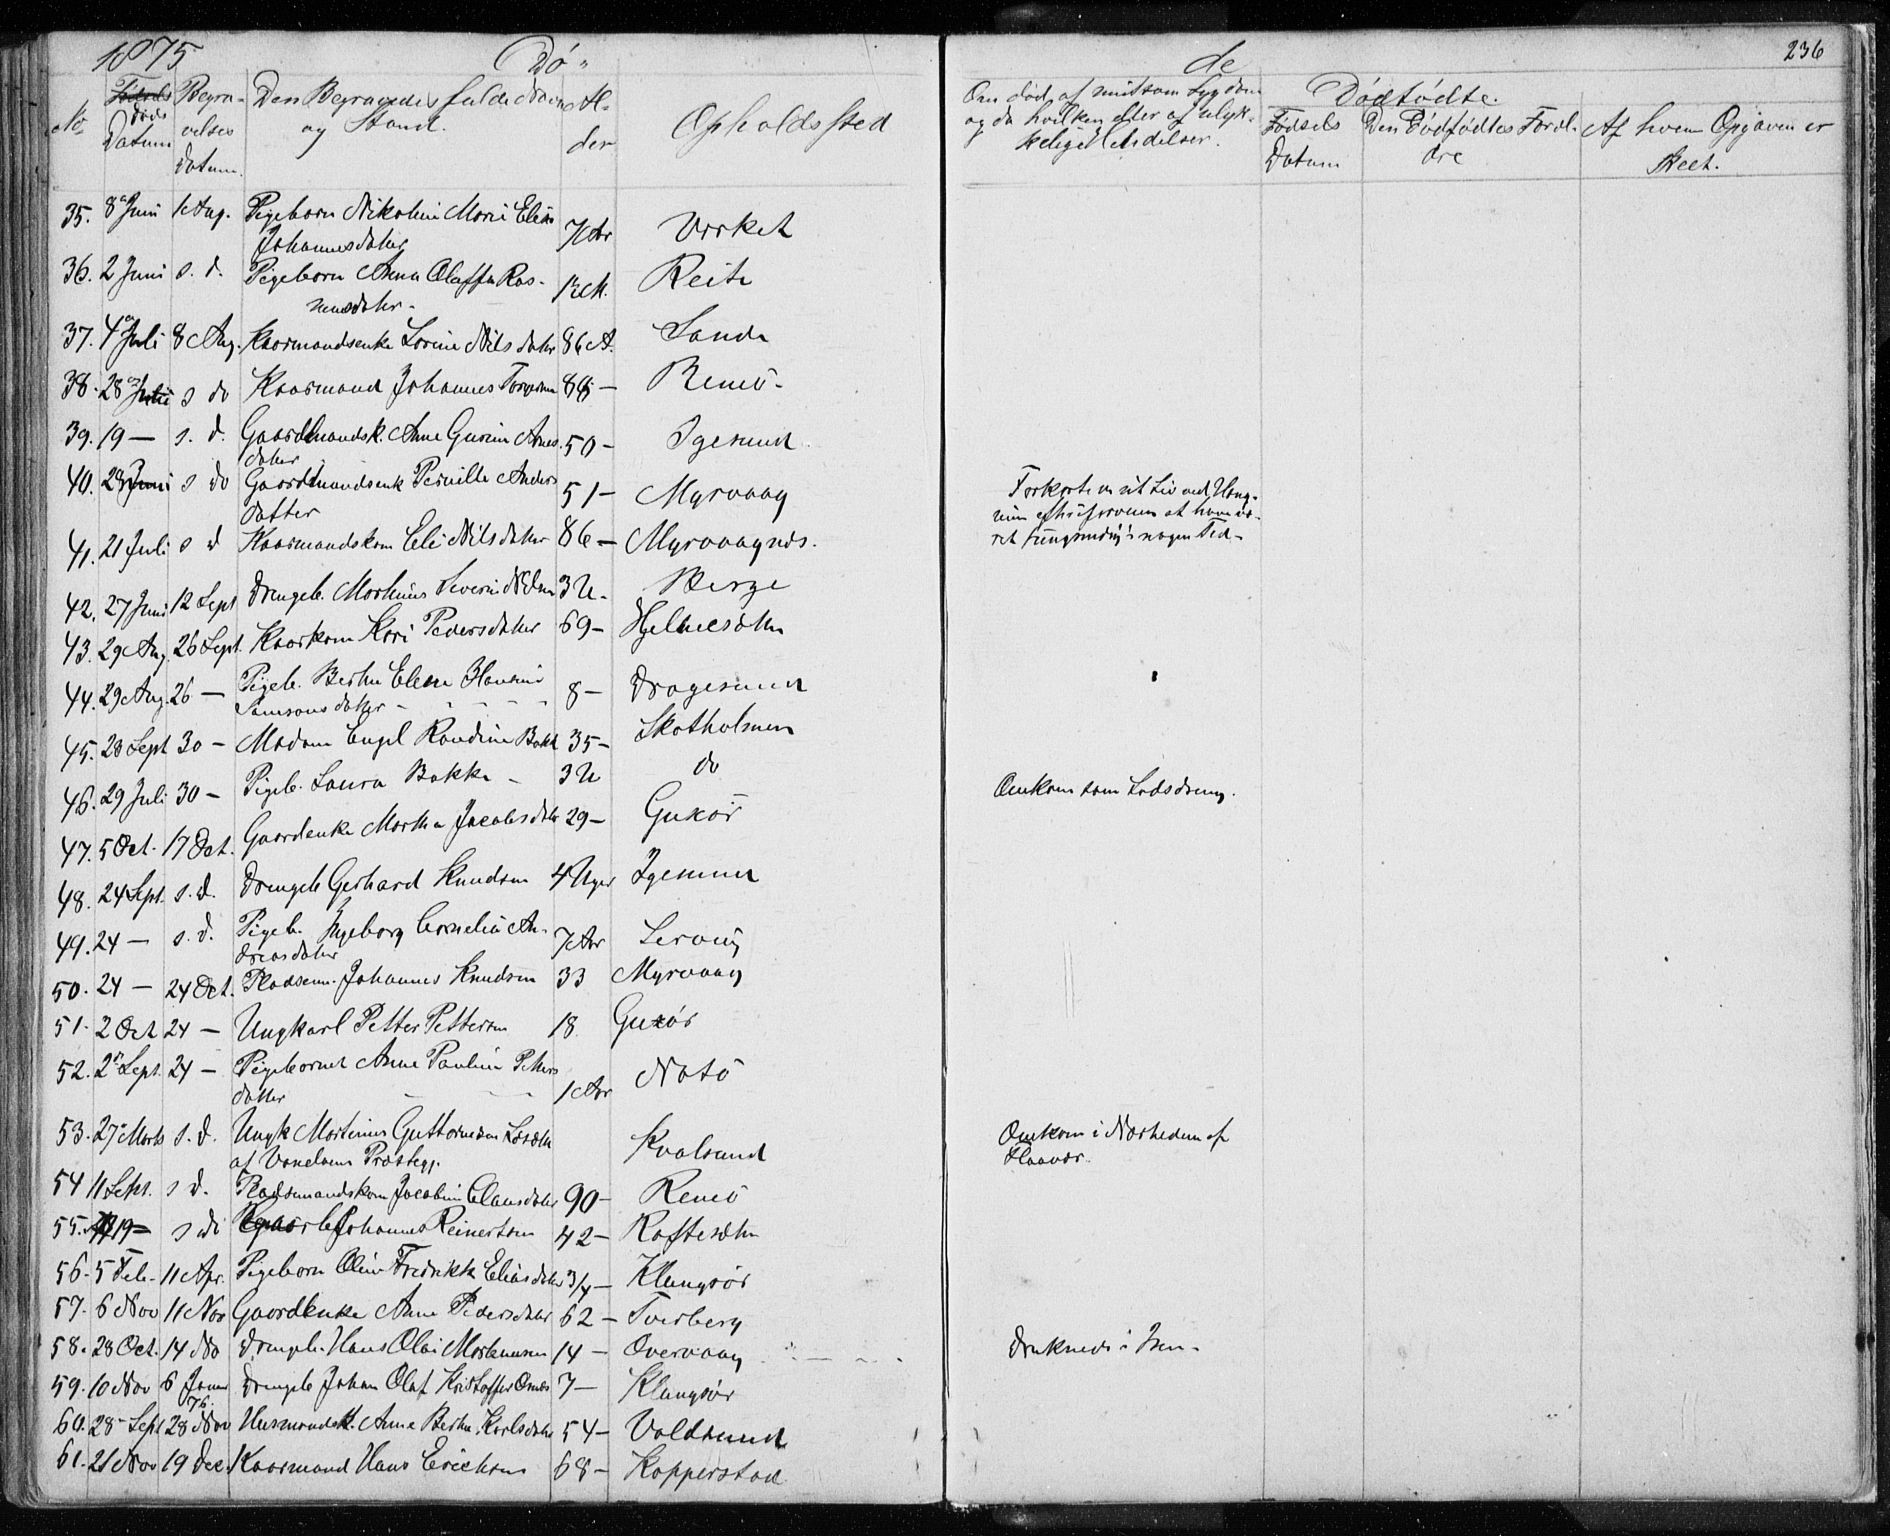 1875 Dö„ de 236
No Døds Datum Begravelses Datum. Den Begravedes fulde Navn og Stand. Alder Opholdssted Om død af smitsom Sygdom og da hvilken eller af ulykkelige Hendelser. Dødfødte. Fødsels Datum Den Dødfødtes Foreldre Af hvem Opgaven er skeet.
35. 8 Juni 1 Aug. Pigebarn Nikoline Marie Eline
Johannesdatter 7 Aar Virket
36. 2 Juni s. d. Pigebarn Anna Olaffa Ras-
musdatter - 12 M. Reite
37. 4 Juli 8 Aug. Kaarmandsenke Lorine Nilsdatter 86 A. Sande
38. 28 Juli s do Kaarmand Johannes 86 — Remö -
39. 19 — s. d. Gaardmandsk. Anne Gurine Arnes
datter 50 - Igesund
40. 28 Juni s do Gaardmandsenk Pernille Anders
datter 51 - Myrvaag Forkortede sit Liv ved Hæng-
ning efter forveien at have væ-
ret tungsindig i nogen Tid -
41. 21 Juli s d Kaarmandskone Eli Nilsdatter 86 — Myrvaagnes.
42. 27 Juni 12 Sept Drengeb. Martinus Severin Nilsen 3 U. Berge
43. 29 Aug. 26 Sept. Kaarkone Kari Pedersdatter 69 - Hjelmesæter
44. 29 Aug. 26 — Pigeb. Berthe Elene Hansine
Samsonsdatter - 8 - Dragesund
45. 28 Sept 30 - Madam Engel Randine Bakke 35 - Skotholmen
46. 29 Juli 30 - Pigeb. Laura Bakke - 3 U do
47. 5 Oct. 17 Oct. Gaardenke Marthe Jacobsdatter 29 - Gurskör Omkom som Lodsdreng.
48. 24 Sept. s. d. Drengeb Gerhard Knudsen 4 Uger Igesund
49. 24 — s. d. Pigeb. Ingeborg Cornelia An-
dreasdatter 7 Aar Lervig
50. 24 — 24 Oct. Pladsem. Johannes Knudsen 33 Myrvaag
51. 2 Oct 24 — Ungkarl Petter Pettersen 18
52. 2 Sept. 24 — Pigebarnet Anne Pauline Petters
datter 1 Aar Notö
53. 27 Marts s. d. Ungk Martinus Guttormsen
af Vanelvens Præstegj. Kvalsund Omkom i Nærheden af
54 11 Sept. s d. Pladsmandskone Jacobine Clausdatter 90 - Remö
55. 19 — s di Johannes Reinertsen 42 - Raftesæter
56. 5 Feb. 11 Apr. Pigebarn Oline Fredrikke Eliasdatter 3/4 — Klungsör
57. 6 Nov 11 Nov Gaardenke Anne Pedersdatter 62 — Tverberg
58. 28 Oct. 14 No Drengeb. Hans Olai Martinussen 14 — Overvaag Druknede i Isen -
59. 10 Nov 6 Janu 76. Drengeb Johan Olaf Kristoffer 7 — Klungsör
60. 28 Sept 28 Nov Husmandsk. Anne Berthe Karlsdatter 54 - Voldsund
61. 21 Nov 19 Dec. Kaarmand Hans Ericksen 68 - Kopperstad